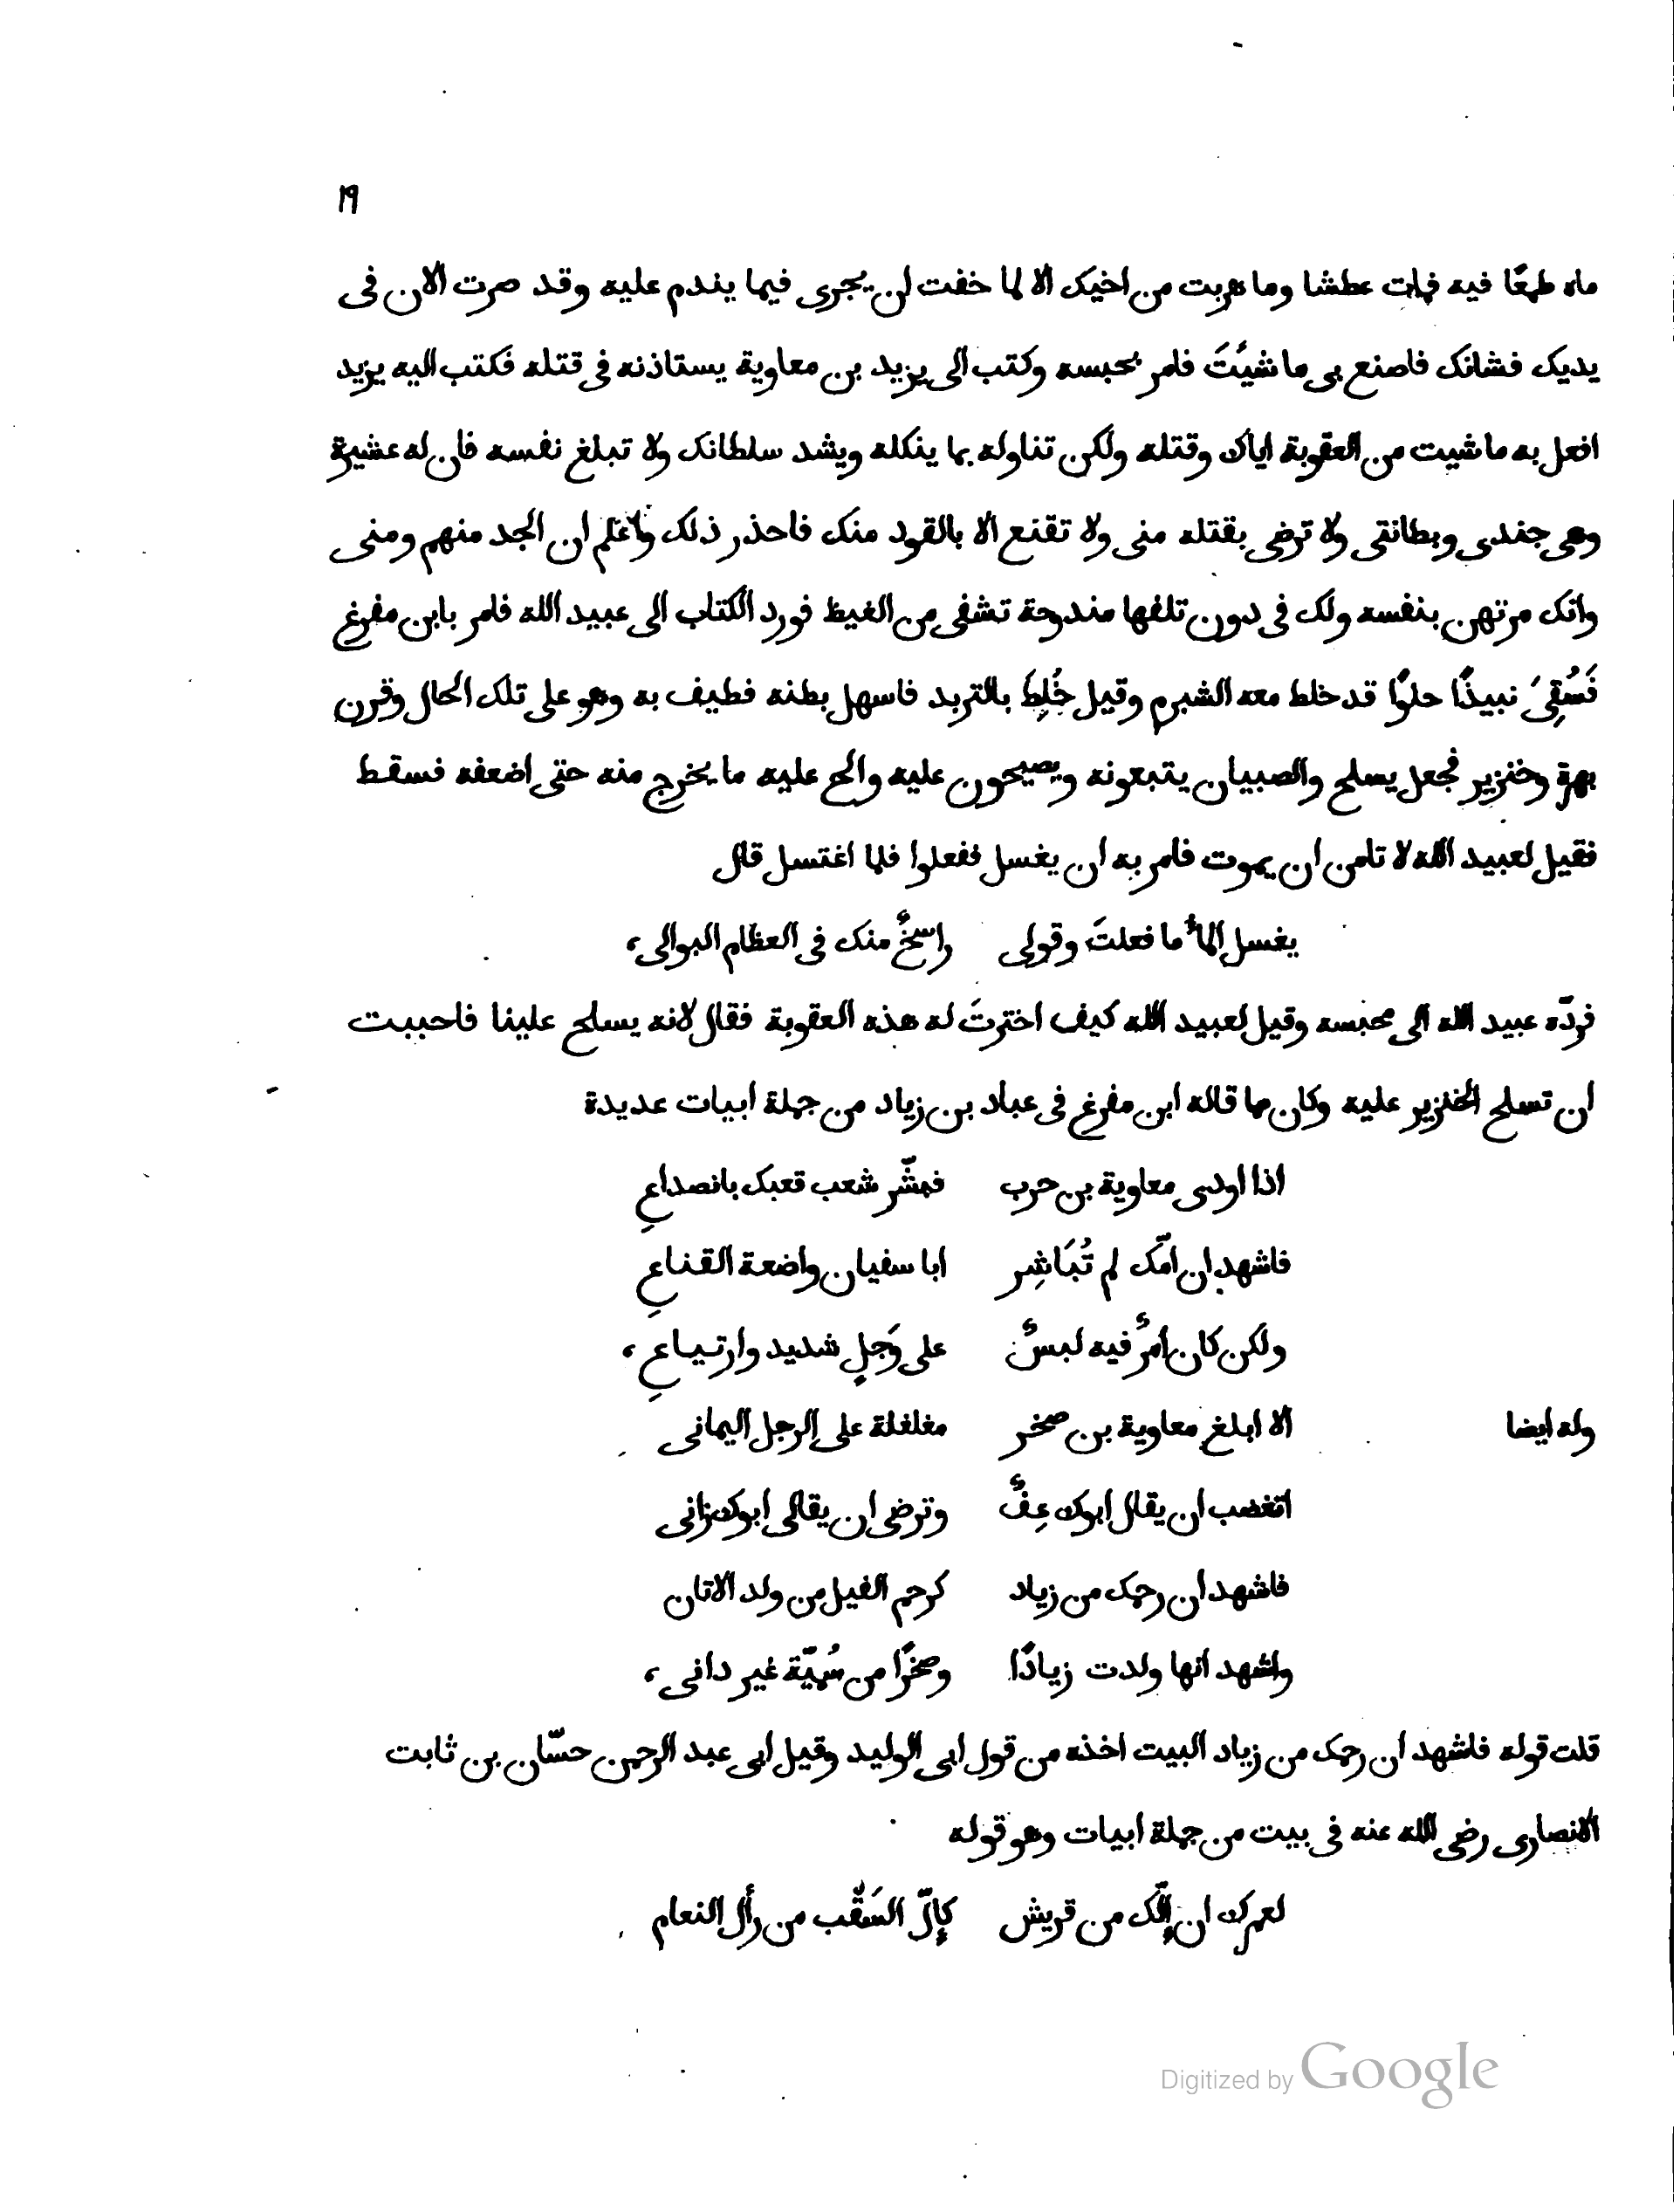 ١٩
ماه طمعًا فيه فمات عطشا وما هربت من اخيك الا لما خفت ان يجرى فيما يندم عليه وقد صرت الان فى
يديك فشانك فاصنع بى ما شيُتَ فامر بحبسه وكتب الى يزيد بن معاوية يستاذنه فى قتله فكتب اليه يزيد
افعل به ما شيت من العقوبة اياك وقتله ولكن تناوله بما ينكله ويشد سلطانك ولا تبلغ نفسه فان له عشيرة
وهى جندى وبطانتى ولا ترضى بقتله منى ولا تقنع الا بالقود منك فاحذر ذلك واعلم ان الجد منهم ومنى
وانك مرتهن بنفسه ولك فى دون تلفها مندوحة تشفى من الغيظ فورد الكتاب الى عبيد الله فامر بابن مفرغ
فَسُقِىَ نبيذًا حلوًا قد خلط معه الشبرم وقيل خُلِطَ بالتربد فاسهل بطنه فطيف به وهو على تلك الحال وقرن
بهرة وخنزير فجعل يسلح والصبيان يتبعونه ويصيحون عليه والح عليه ما يخرج منه حتى اضعفه فسقط
فقيل لعبيد الله لا تامن ان يموت فامر به ان يغسل ففعلوا فلما اغتسل قال
يغسل المأُ ما فعلتَ وقولى راسخٌ منك فى العظام البوالى،
فردّه عبيد الله الى محبسه وقيل لعبيد الله كيف اخترتَ له هذه العقوبة فقال لانه يسلح علينا فاحببت
ان تسلح الخنزير عليه وكان مما قاله ابن مفرغ فى عباد بن زياد من جملة ابيات عديدة
اذا اودى معاوية بن حرب فبشّر شعب قعبك بانصداعِ
فاشهد ان امّك لم تُبَاشِر ابا سفيان واضعة القناعِ
ولكن كان امرٌ فيه لبسٌ على وَجَلٍ شديد وارتياعِ،
وله ايضا الا ابلغ معاوية بن صخر مغلغلة على الرجل اليمانى
اتغضب ان يقال ابوك عِفٌّ وترضى ان يقال ابوك زانى
فاشهد ان رحمك من زياد كرحم الفيل من ولد الاتان
واشهد انها ولدت زيادًا وصخرًا من سُميّة غير دانى،
قلت قوله فاشهد ان رحمك من زياد البيت اخذه من قول ابى الوليد وقيل ابى عبد الرحمن حسّان بن ثابت
الانصارى رضى الله عنه فى بيت من جملة ابيات وهو قوله
لعمرك ان إلّك من قريش كإلّ السَقْب من رأل النعام
Digitized by Google